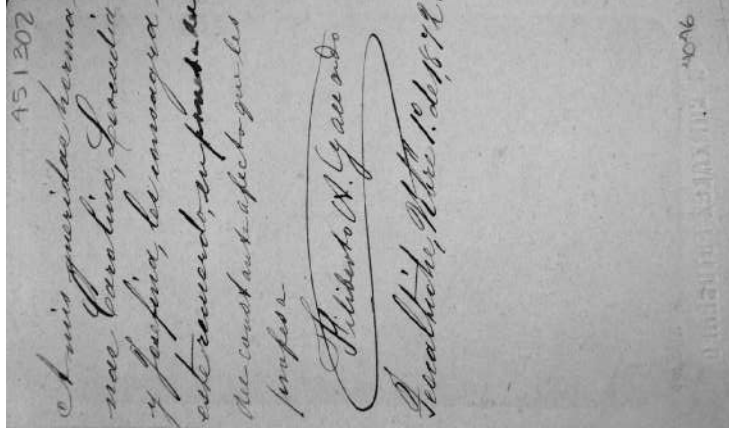 451302
A mis queridas herma
nas Carolina, Leocadia
y Josefina, les consagra
este recuerdo, en prueba de
du constante afecto que les
profesa
Filiberto A.
Teocaltiche, 1º de 1872.
4096